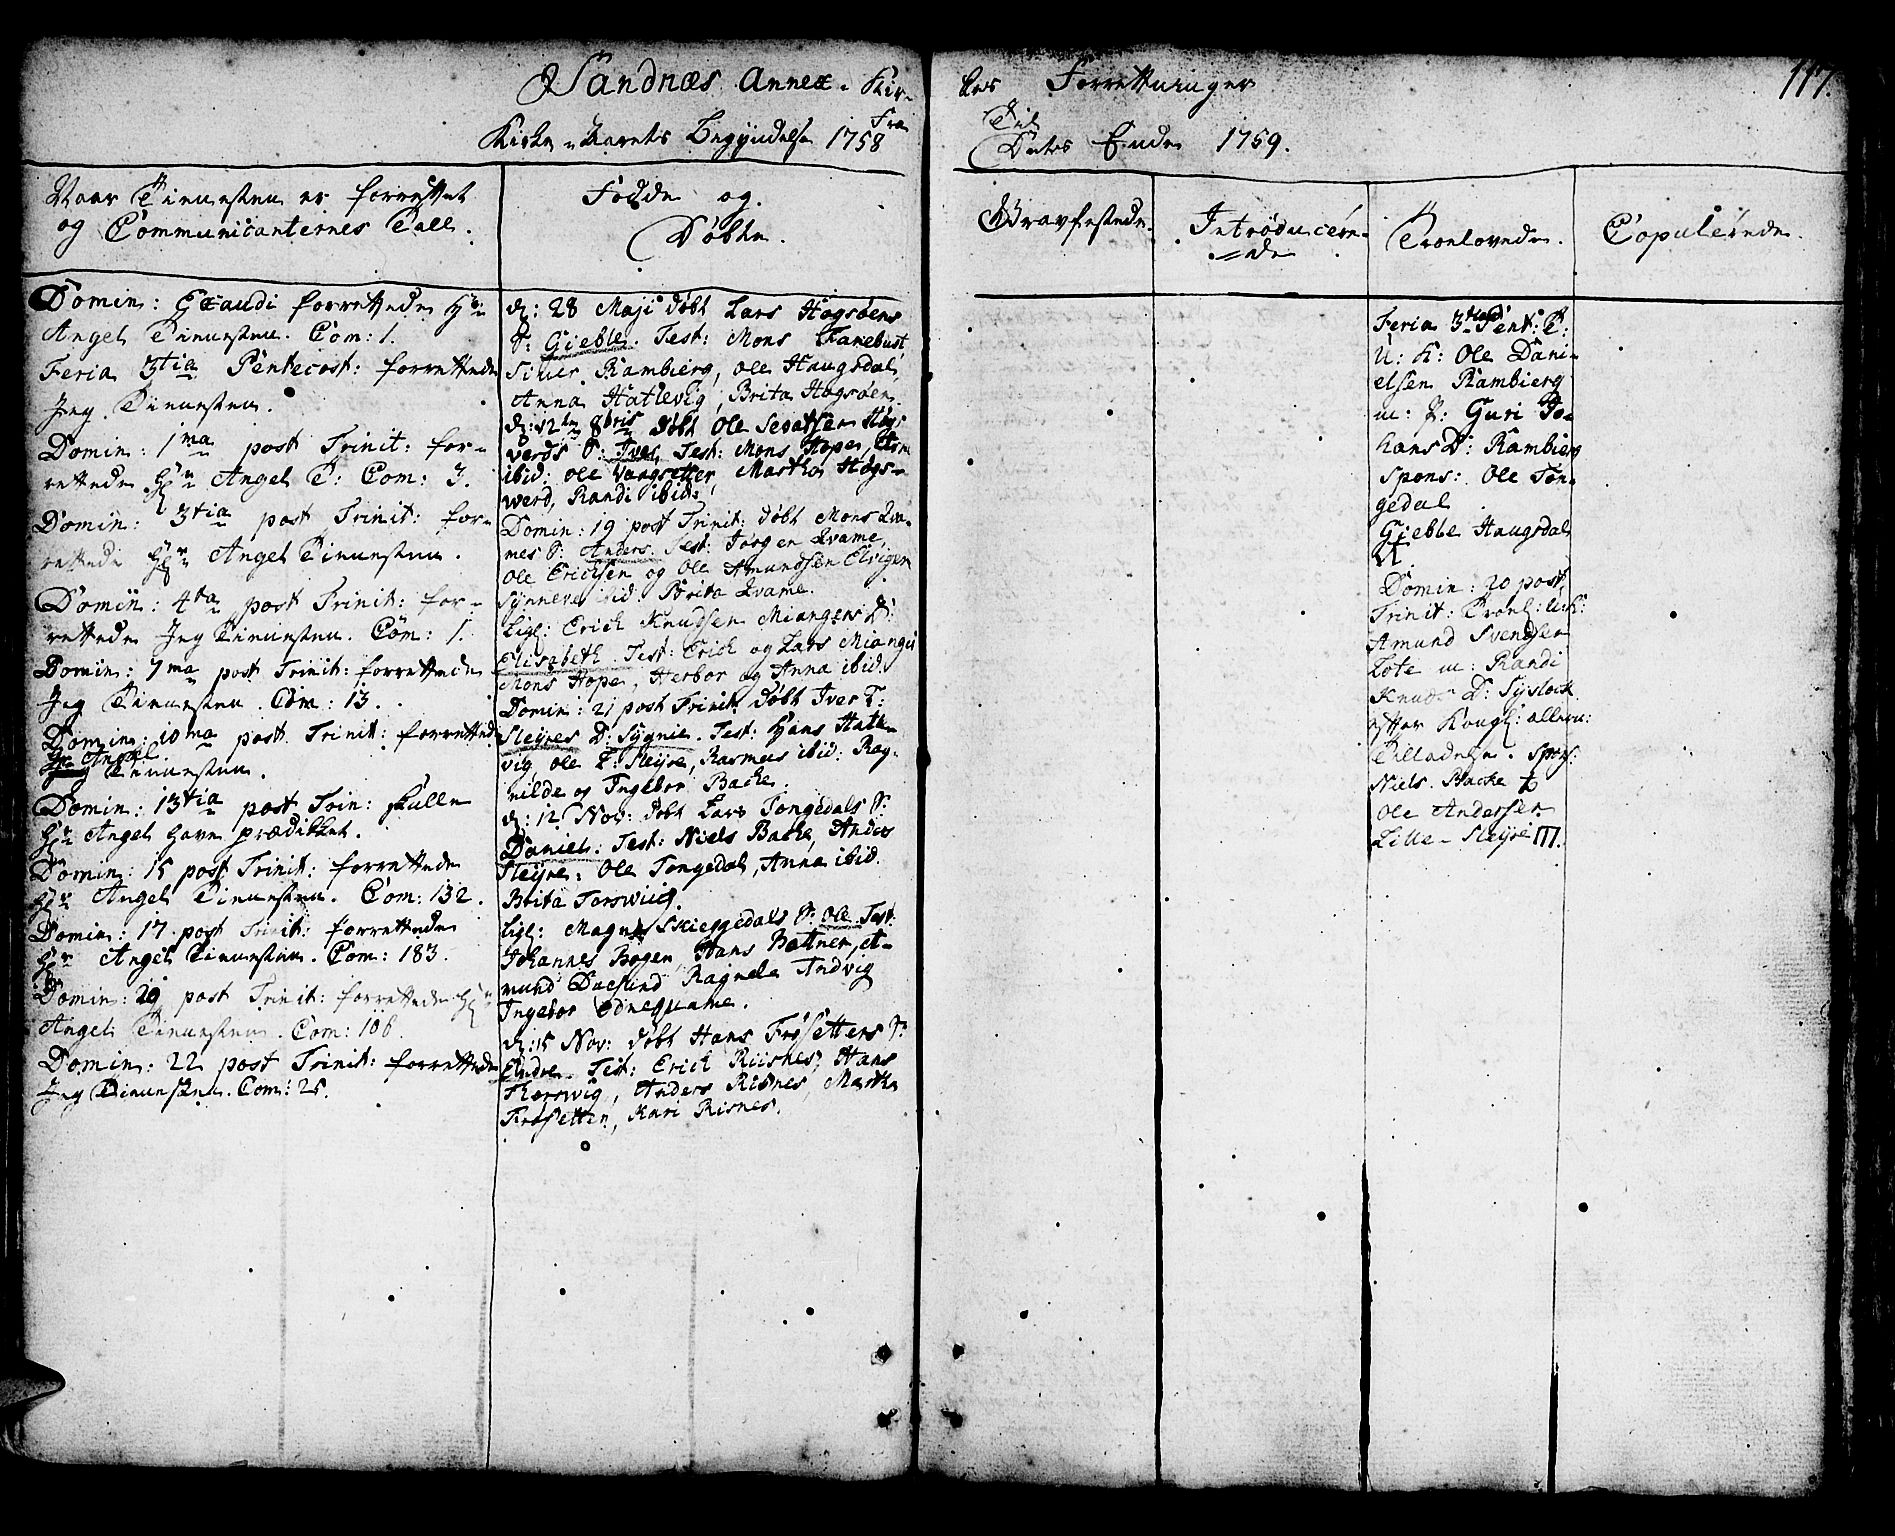 Sandnæs Annex-Kir-
Fra
Kirke-Aarets Begyndelse 1758
kes Forretninger
117.
Til
Dets Ende 1759.
Naar Tienesten er forrettet
og Communicanternes Tall.
Domin: Exaudi forrettede Hr
Angel Tienesten. Com: 1.
Feria 3tia Pentecost: forrettede
Jeg Tienesten.
Domin: 1ma post Trinit: for-
rettede Hr Angel T: Com: 3.
Domin: 3tia post Trinit: for-
rettede Hr Angel Tienesten.
Domin: 4ta post Trinit: for-
rettede Jeg Tienesten. Com: 1.
Domin: 7ma post Trinit: forrettede
Jeg Tienesten. Com: 13.
Domin: 10ma post Trinit: forrettede
Hr Angel
Tienesten.
Domin: 13tia post Trin: skulle
Hr Angel have prædikket.
Domin: 15 post Trinit: forrettede
Hr Angel Tienesten. Com: 132.
Domin: 17 post Trinit: forrettede
Hr Angel Tienesten. Com: 183.
Domin: 20 post Trinit: forrettede Hr
Angel Tienesten. Com: 106.
Domin: 22 post Trinit: forrettede
Jeg Tienesten. Com: 25.
Fødde og
Døbte.
d: 28 Maji døbt Lars Hogsøens
S: Gieble. Test: Mons Fanebust,
Siver Rambierg, Ole Haugsdal,
Anna Hatlevig, Brita Hogsøen.
d: 12te 8bris døbt Ole Hogs-
verds S: Iver, Test: Mons Hope,
ibid: Ole Vaagsetter, Martha Hogs-
werd, Randi ibid:
Domin: 19 post Trinit: døbt Mons Qva-
mes S: Anders. Test: Jørgen Qvame,
Ole Erichsen og Ole Amundsen Elvigen
Synneve ibid: Brita Qvame.
Ligl: Erich Knudsen Miangers D:
Elisabeth. Test: Erich og Lars Mianger
Mons Hope, Herbor og Anna ibid.
Domin: 21 post Trinit: døbt Iver T:
Sleires D: Sygnie. Test: Hans Hatle-
vig, Ole T: Sleire, Rasmus ibid: Rag-
nilde og Ingebor Bache.
d: 12 Nov: døbt Lars Tongedals S:
Daniel. Test: Niels Bache, Anders
Sleire, Ole Tongedal, Anna ibid.
Brita Torswiig.
Ligl: Magne Skieggedals S: Ole. Test:
Johannes Bogen, Hans Battner, A-
mund Duesund Ragnele Andvig
Ingebor Odnequame.
d: 15 Nov: døbt Hans Frøsetters S:
Endre. Test: Erich Riisnes, Hans
Thorswig, Anders Risnes, Martha
Frøsetter, Kari Risnes.
Gravfestede.
Introducere-
de
Troelovede.
Feria 3tia Pent: T:
U: K: Ole Dani-
elsen Rambierg
m: P: Guri Jo-
hans D: Rambierg
Spons: Ole Ton-
gedal
Gieble Haugsdal
Domin: 20 post
Trinit: Troel:
Amund Svendsen
Lote m: Randi
Knuds D: Syslack
efter Kongl: allern:
Tilladelse. Spons:
Niels Bache
Ole Andersen
Lille-Sleire
Copulerede.